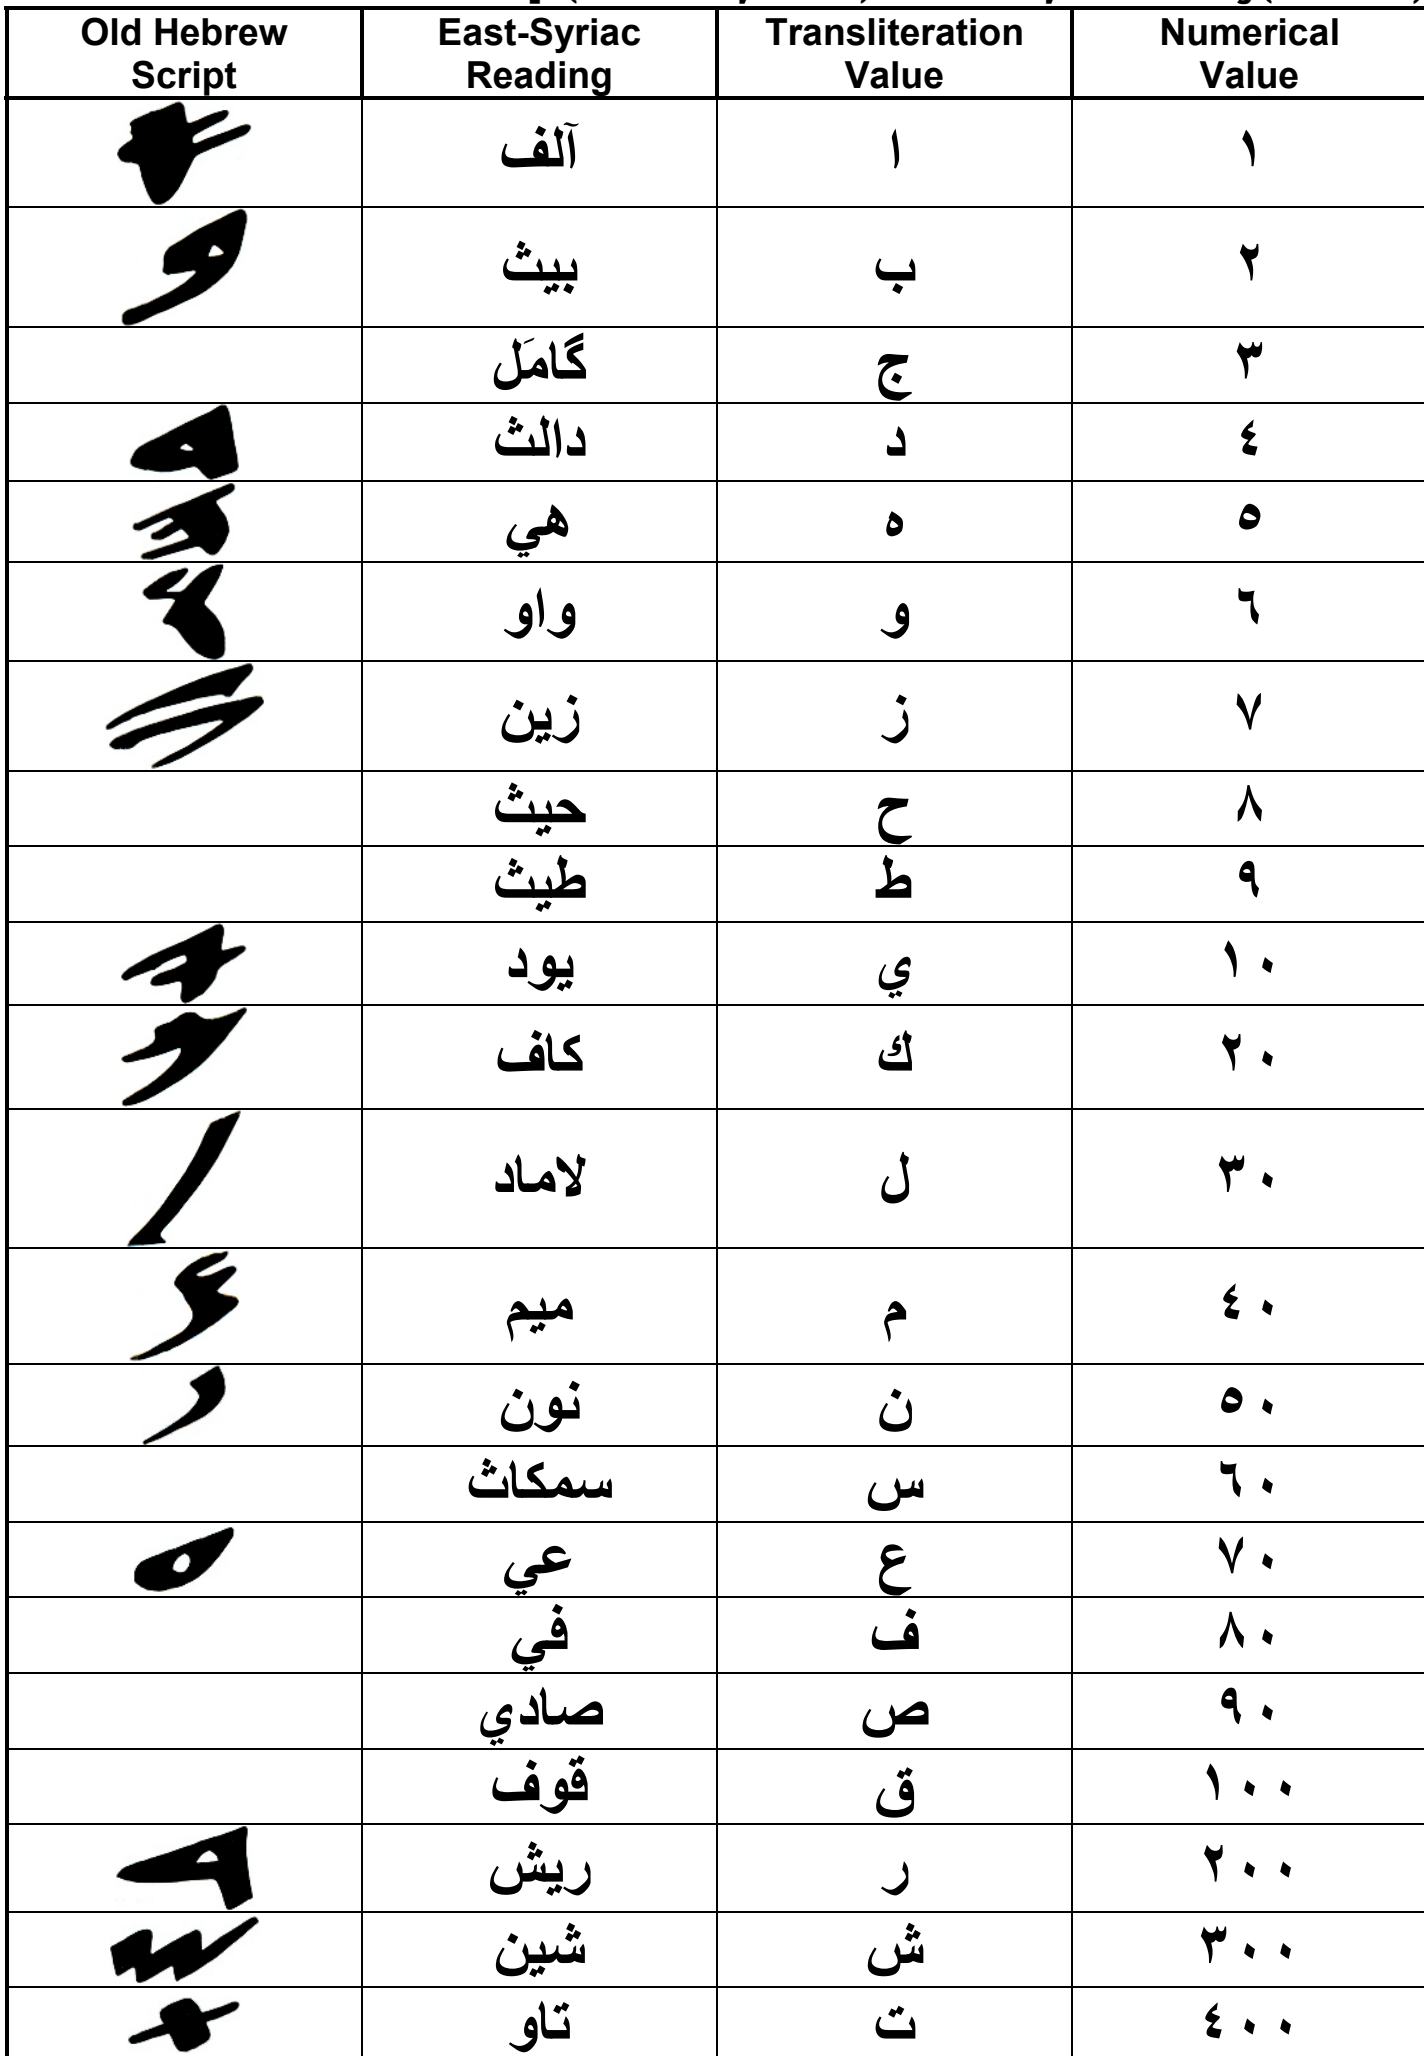 Old Hebrew Script | East-Syriac Reading | Transliteration Value | Numerical Value
آلف | ا | ١
بيث | ب | ٢
گامَل | ج | ٣
دالث | د | ٤
هي | ه | ٥
واو | و | ٦
زين | ز | ٧
حيث | ح | ٨
طيث | ط | ٩
يود | ي | ١٠
كاف | ك | ٢٠
لاماد | ل | ٣٠
ميم | م | ٤٠
نون | ن | ٥٠
سمكاث | س | ٦٠
عي | ع | ٧٠
في | ف | ٨٠
صادي | ص | ٩٠
قوف | ق | ١٠٠
ريش | ر | ٢٠٠
شين | ش | ٣٠٠
تاو | ت | ٤٠٠